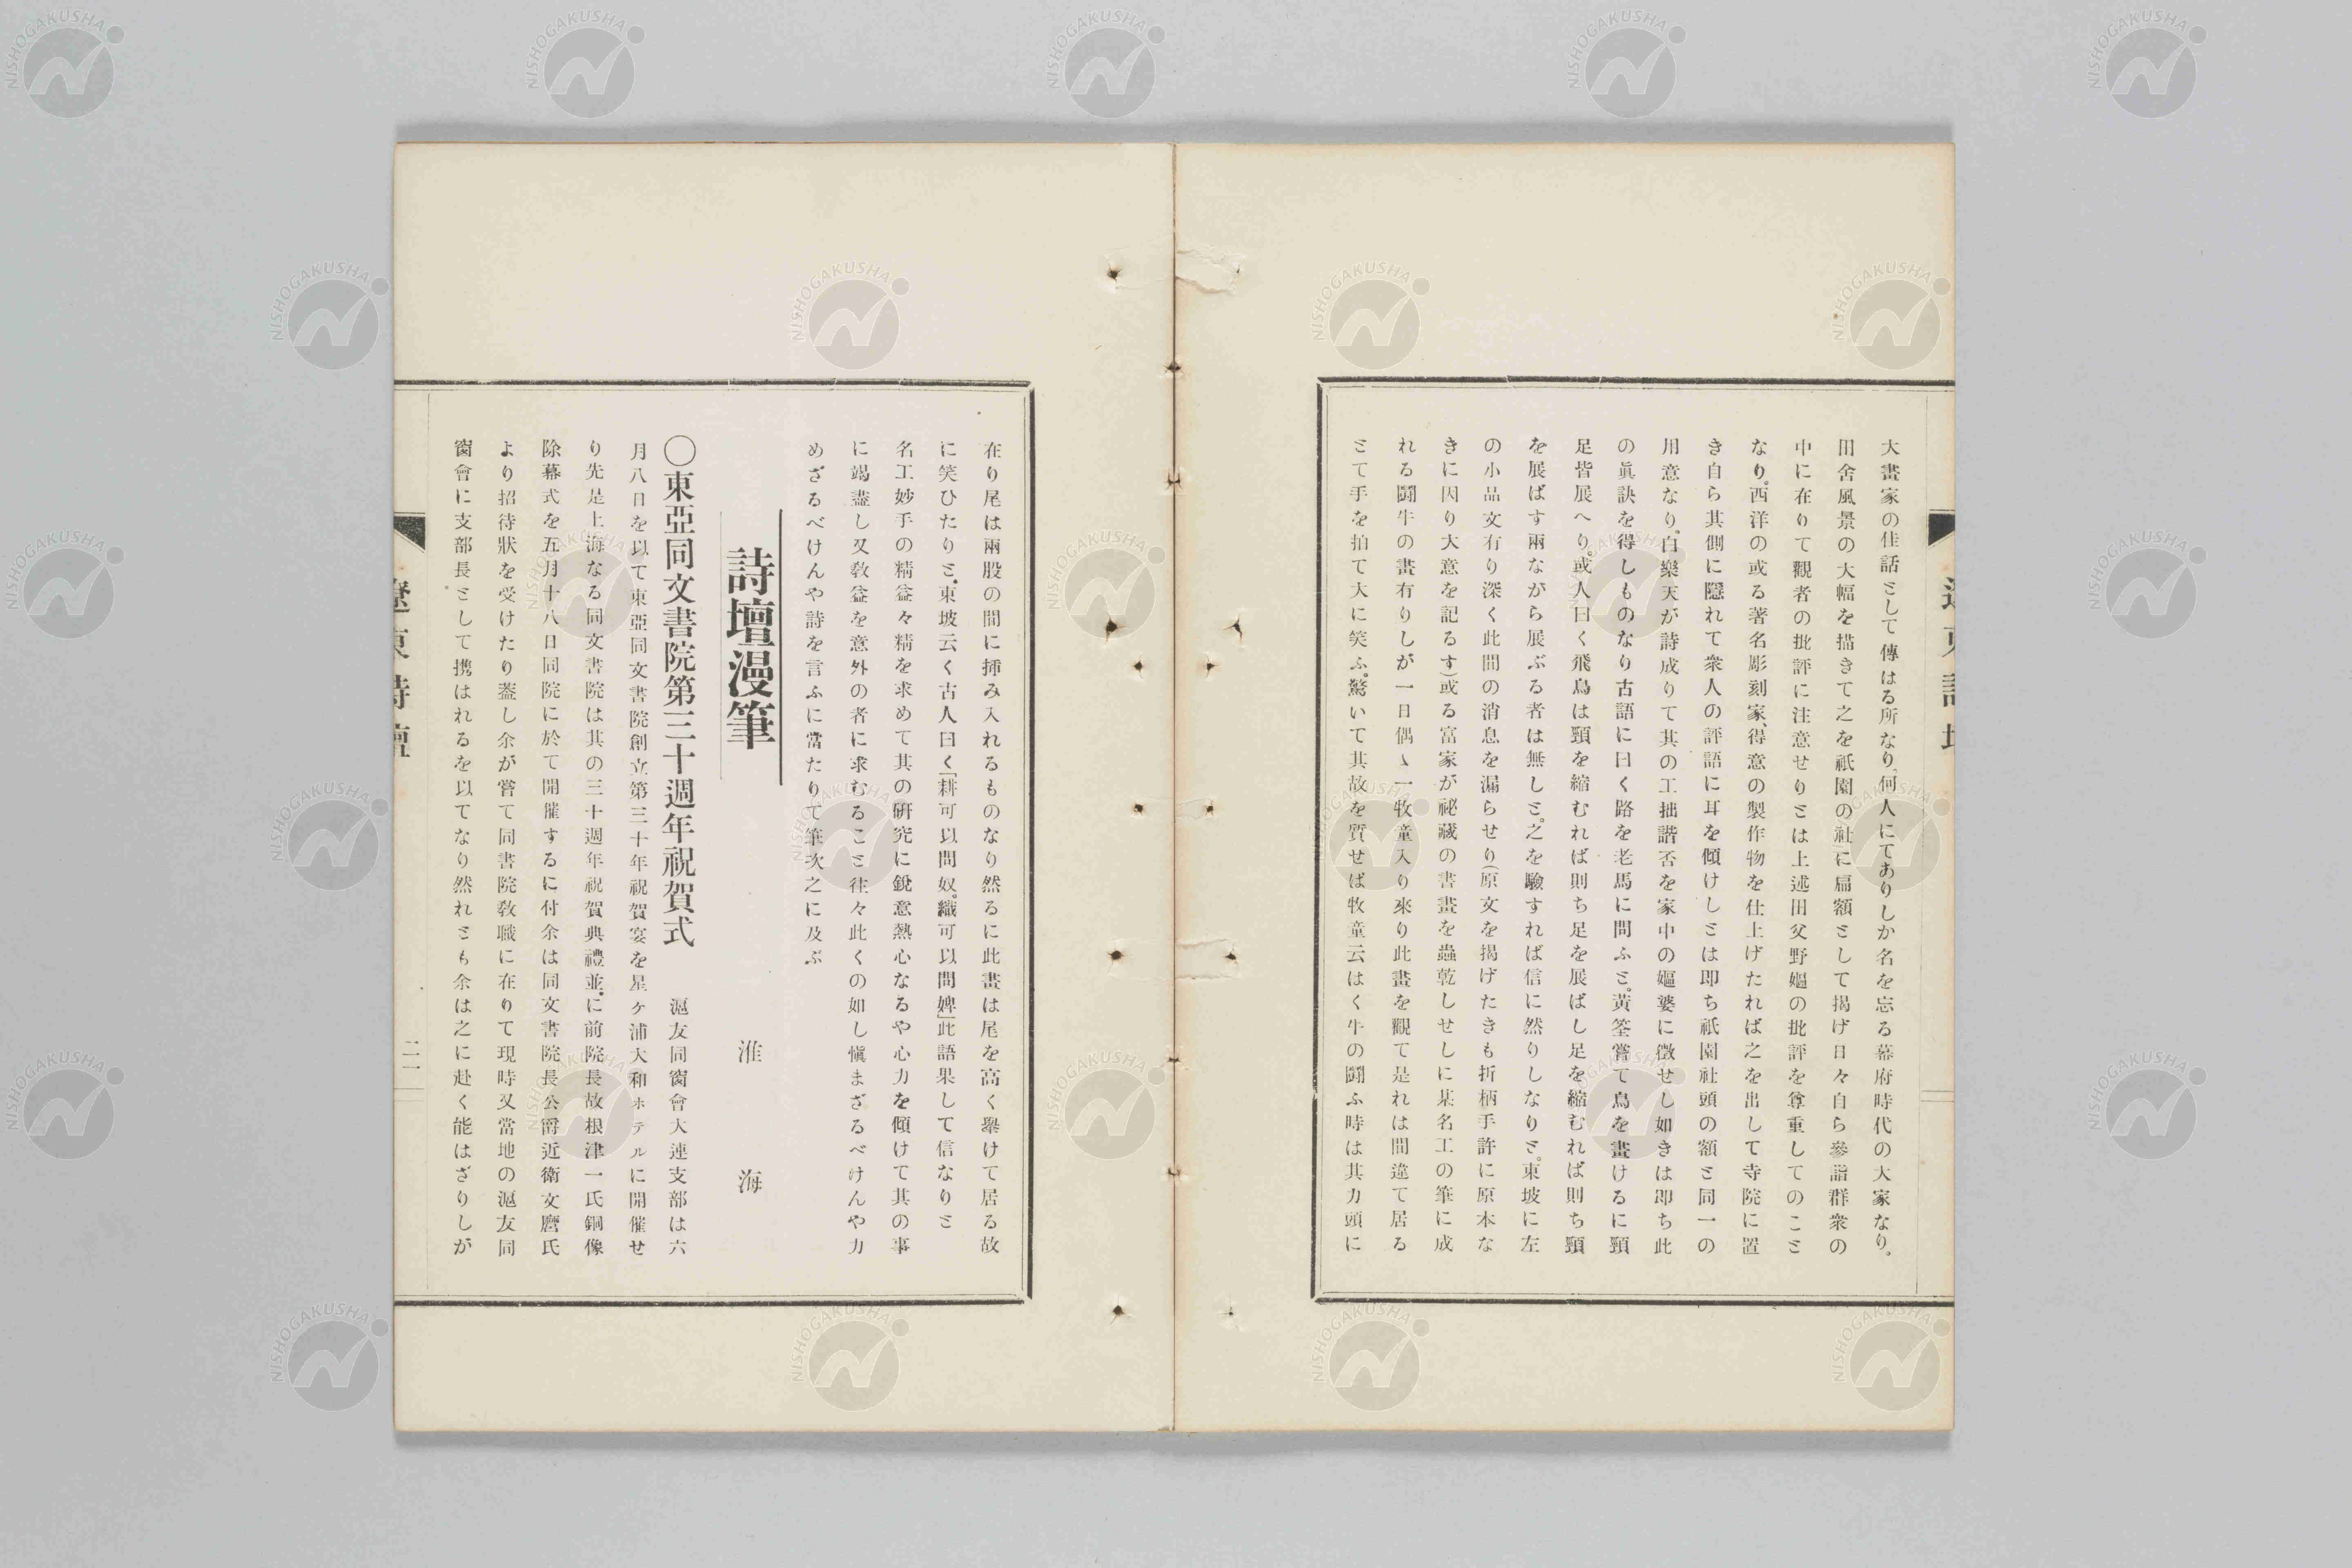 大畫家の佳話として傳はる所なり何人にてありしか名を忘る幕府時代の大家なり。
田舍風景の大幅を描きて之を祇園の社に扁額として揭げ日々自ら參詣群衆の
中に在りて觀者の批評に注意せりとは上述田父野嫗の批評を尊重してのこと
なり。西洋の或る著名彫刻家、得意の製作物を仕上げたれば之を出して寺院に置
き自ら其側に隱れて衆人の評語に耳を傾けしとは即ち祇園社頭の額と同一の
用意なり。白樂天が詩成りて其の工拙諧否を家中の嫗婆に徵せし如きは即ち此
の眞訣を得しものなり古語に曰く路を老馬に問ふと。黃筌嘗て鳥を畫けるに頸
足皆展へり。或人曰く飛鳥は頸を縮むれば則ち足を展ばし足を縮むれば則ち頸
を展ばす兩ながら展ぶる者は無しと。之を驗すれば信に然りしなりと。東坡に左
の小品文有り深く此間の消息を漏らせり(原文を揭げたきも折柄手許に原本な
きに因り大意を記るす)或る富家が祕藏の書畫を蟲乾しせしに某名工の筆に成
れる鬪牛の畫有りしが一日偶々一牧童入り來り此畫を觀て是れは間違て居る
とて手を拍て大に笑ふ。驚いて其故を質せば牧童云はく牛の鬪ふ時は其力頭に
在り尾は兩股の間に揷み入れるものなり然るに此畫は尾を高く擧けて居る故
に笑ひたりと。東坡云く古人曰く「耕可以問奴。織可以問婢」此語果して信なりと
名工妙手の精益々精を求めて其の硏究に銳意熱心なるや心力を傾けて其の事
に竭盡し又敎益を意外の者に求むること往々此くの如し愼まざるべけんや力
めざるべけんや詩を言ふに當たりて筆次之に及ぶ
詩壇漫筆
淮海
〇東亞同文書院第三十週年祝賀式 滬友同窗會大連支部は六
月八日を以て東亞同文書院創立第三十年祝賀宴を星ケ浦大和ホテルに開催せ
り先是上海なる同文書院は其の三十週年祝賀典禮並に前院長故根津一氏銅像
除幕式を五月十八日同院に於て開催するに付余は同文書院長公爵近衛文麿氏
より招待狀を受けたり蓋し余が嘗て同書院敎職に在りて現時又當地の滬友同
窗會に支部長として携はれるを以てなり然れとも余は之に赴く能はざりしが
遼東詩壇
二一